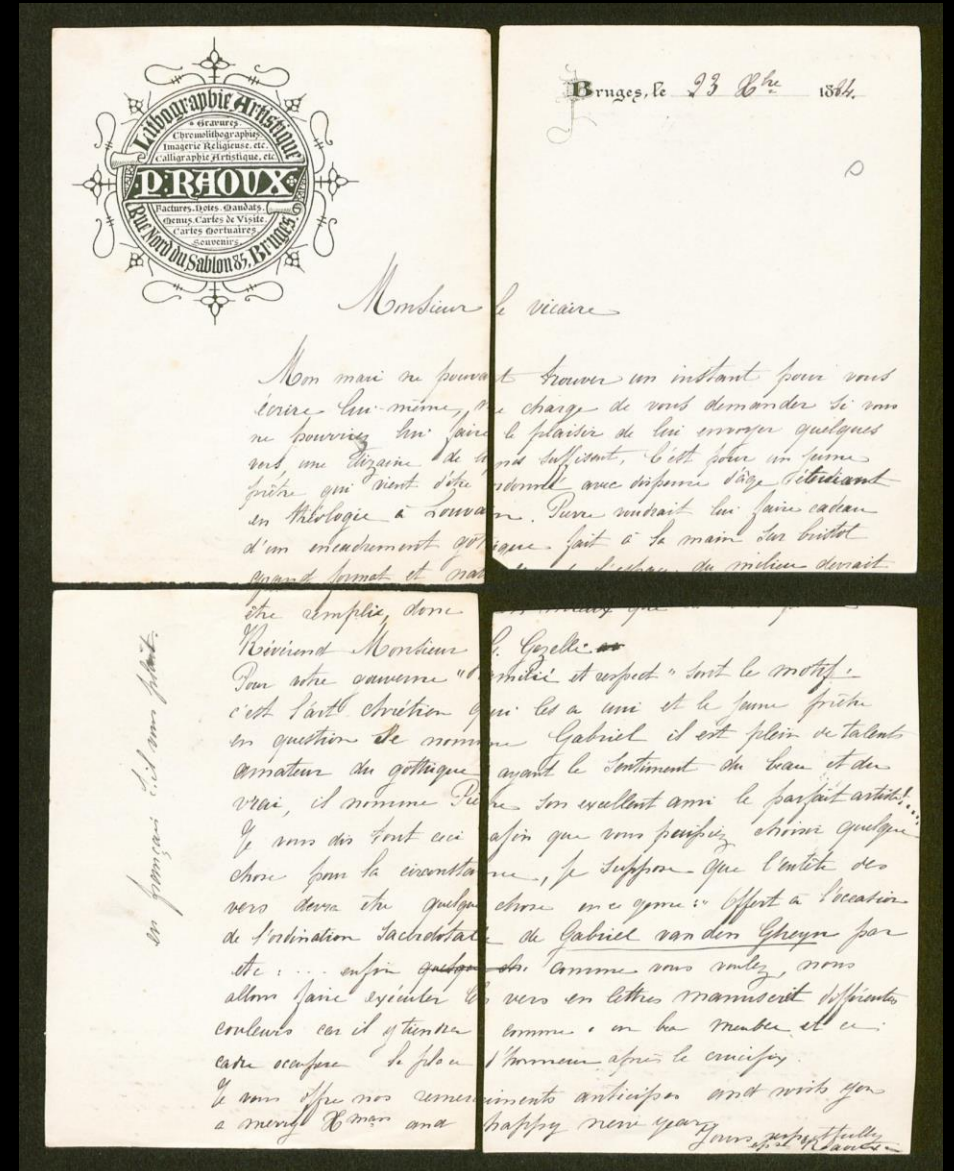 Lithographie Artistique
Gravures
Chromolithographies
Imagerie Religieuse, etc.
Calligraphie Artistique, etc.
P. RAOUX
Factures, Notes, Mandats,
Menus, Cartes de Visite,
Cartes Mortuaires
Souvenirs
Rue Nord du Sablon 85, Bruges.
Bruges, le 23 Xbre 1884.
Monsieur le vicaire
Mon mari ne pouvant trouver un instant pour vous
écrire lui-même, me charge de vous demander si vous
ne pouviez lui faire le plaisir de lui envoyer quelques
vers, une dizaine de suffisent. C'est pour un jeune
prêtre qui vient d'être ordonné avec dispense d'âge étudiant
en théologie à Louvain. Pierre voudrait lui faire cadeau
d'un encadrement gothique fait à la main sur bristol
grand format et du milieu devrait
être remplie, donc mieux que
Révérend Monsieur G. Gezelle
Pour votre gouverne "amitié et respect" sont le motif:
c'est l'art chrétien qui les a uni et le jeune prêtre
en question se nomme Gabriel il est plein de talents
amateur du gothique ayant le sentiment du beau et du
vrai, il nomme Pierre son excellent ami le parfait artiste!...
Je vous dis tout ceci afin que vous puissiez choisir quelque
chose pour la circonstance, je suppose que l'entête des
vers devra être quelque chose en ce genre: "Offert à l'occasion
de l'ordination Sacerdotale de Gabriel van den Gheyn par
etc: ... enfin comme vous voulez, nous
allons faire exécuter les vers en lettres manuscrit différentes
couleurs car il y tiendra comme a un beau meuble et ce
cadre occupera la place d'honneur après le crucifix.
Je vous offre nos remerciments anticipés and wish you
a merry Xmas and happy new year
Yours respectfully
epse Raoux
en français s'il vous plait.